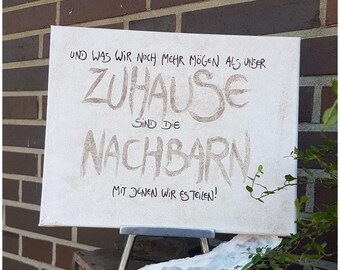 UND WAS WIR NOCH MEHR MÖGEN ALS UNSER
ZUHAUSE
SIND DIE
NACHBARN
MIT DENEN WIR ES TEILEN!